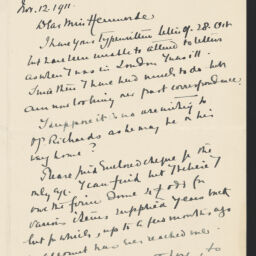 Nov. 12. 1911.
Dear Miss
I have your typewritten letter of 28 Oct
but have been unable to attend to letters
as when I was in London I was ill.
Since then I have had much to do but
am now looking over past correspondence.
I suppose it's no use writing to
Mr Richards as he may be on his
way home?
I have paid enclosed cheque for the
only a/c I can find but I believe I
owe the firm some £ of ods for
various items supplied years back
but for which, up to a few months ago
account had ever reached me.
to